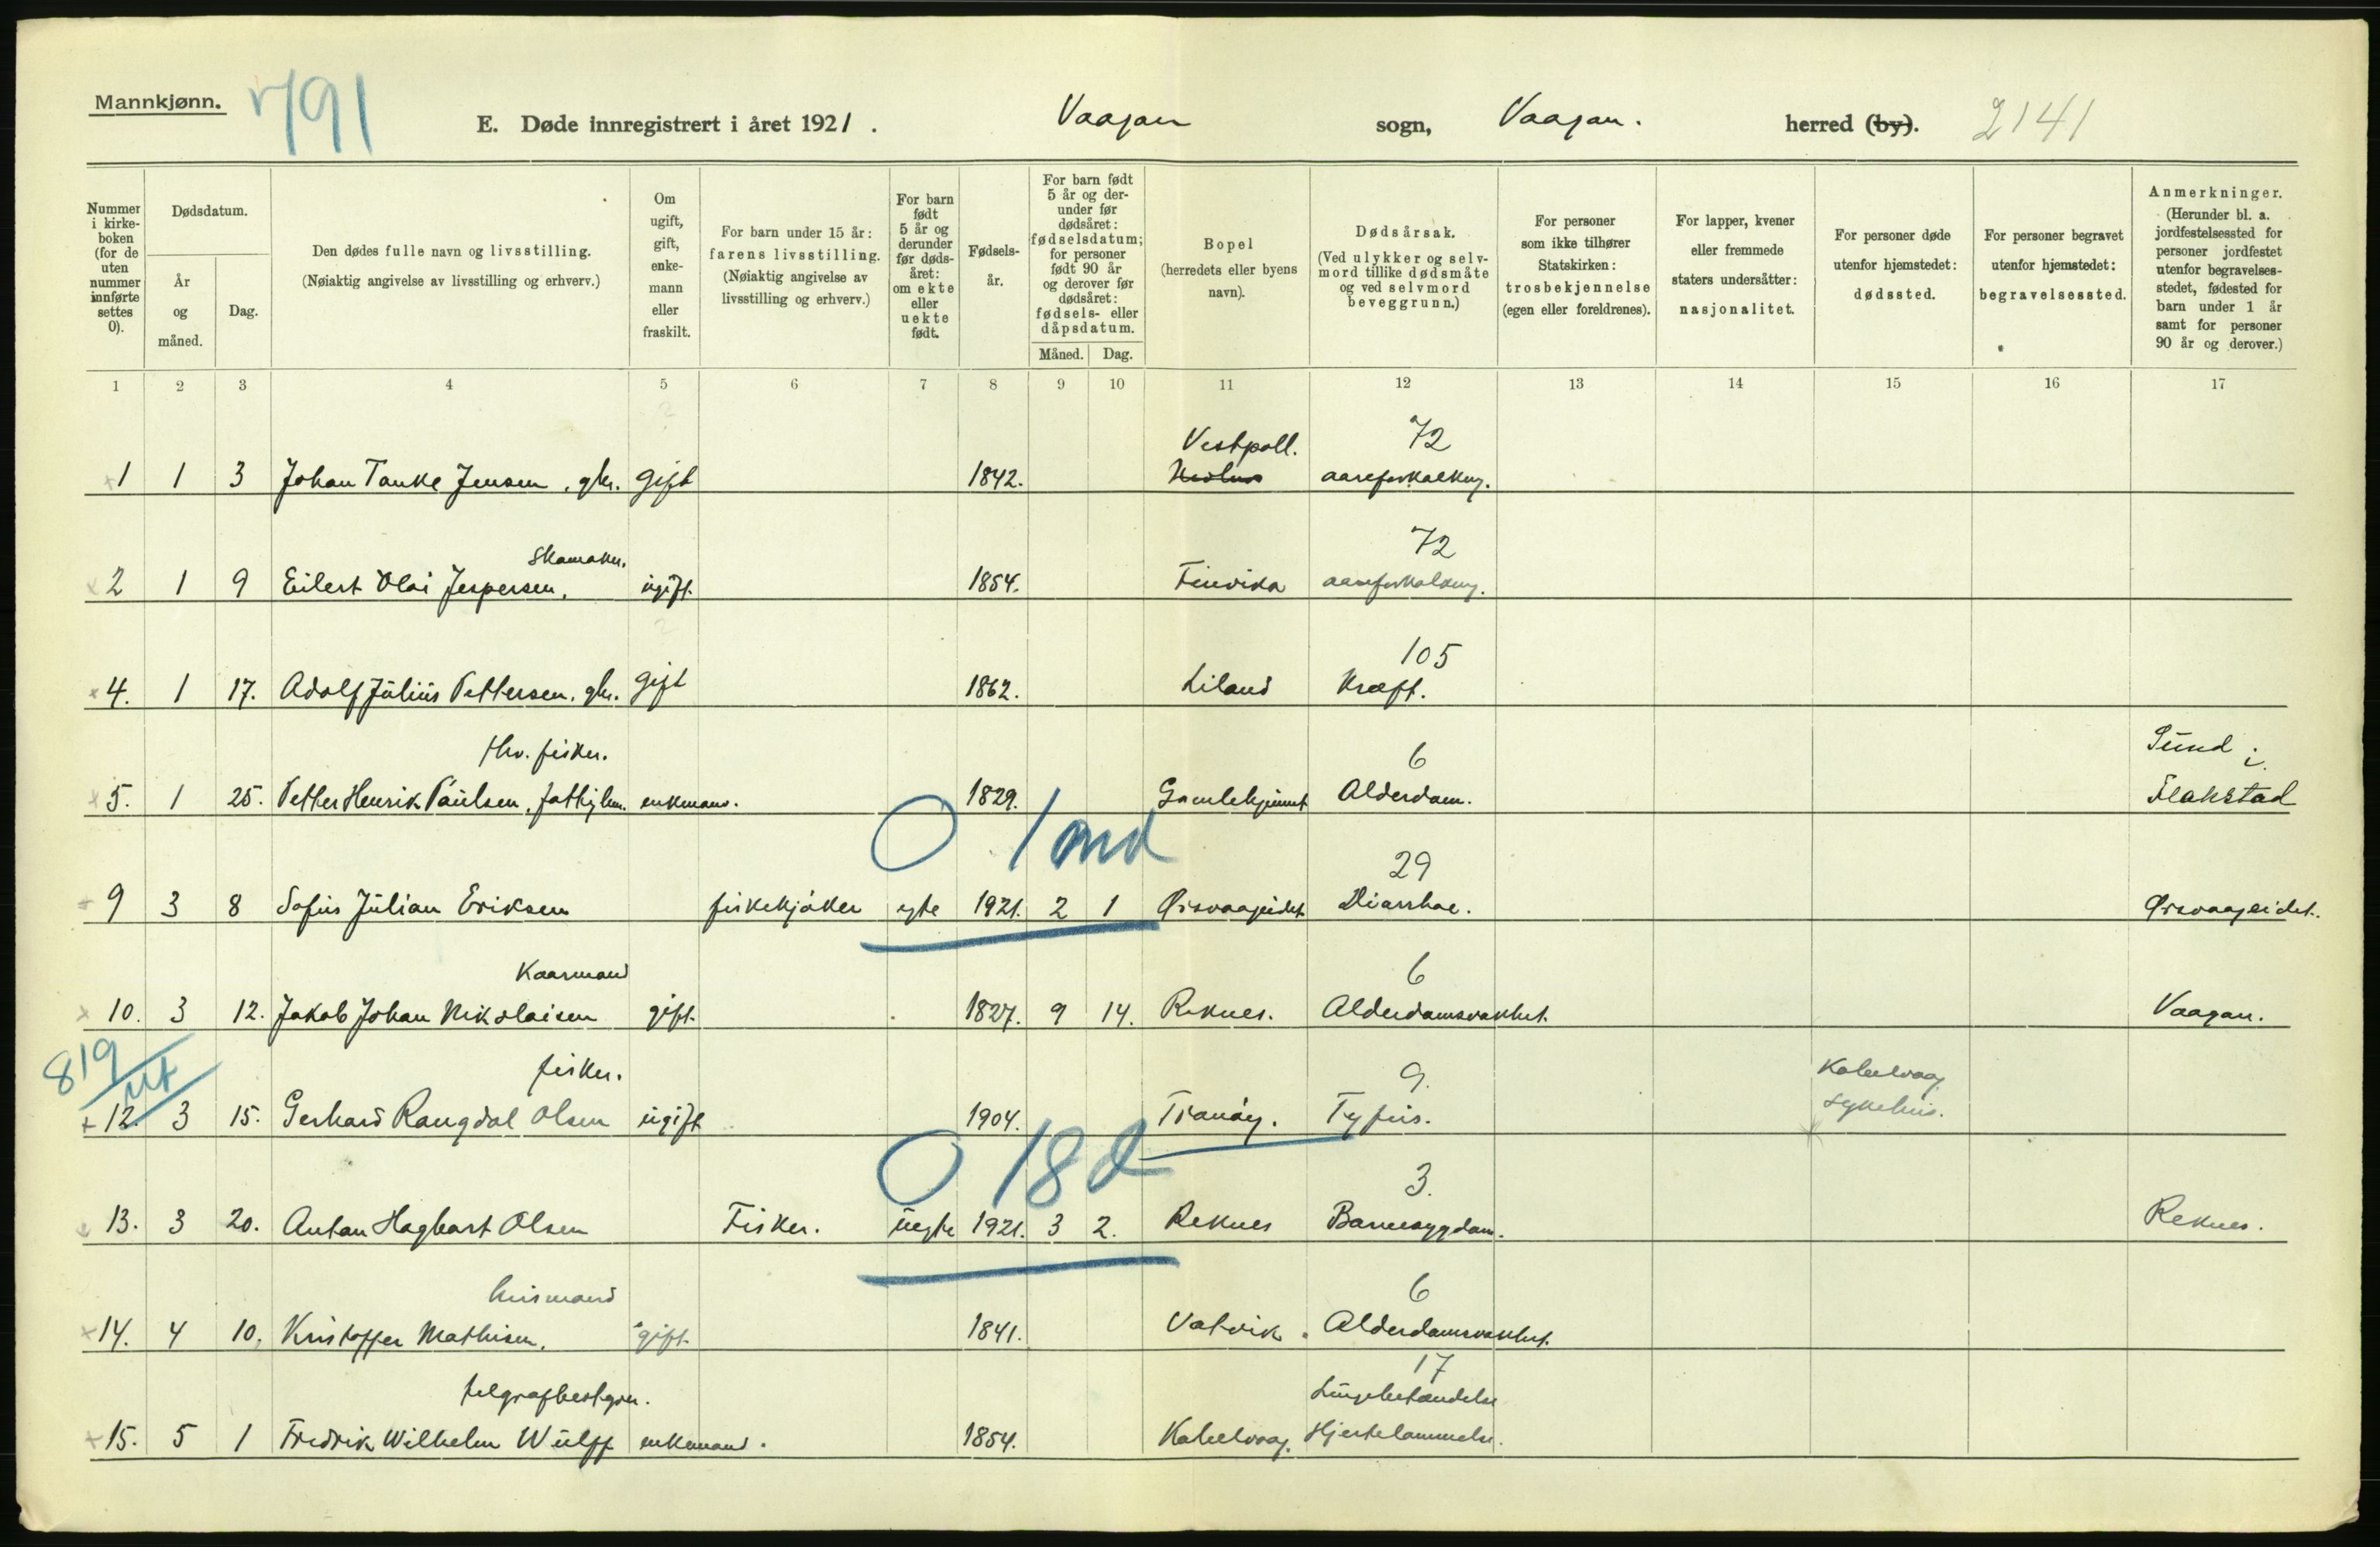 Mannkjønn.
791
E. Døde innregistrert i året 1921.
Vaagan sogn,
Vaagan. herred (by).
2141
Nummer i kirkeboken (for de uten nummer innførte settes 0).
Dødsdatum.
År og måned.
Dag.
Den dødes fulle navn og livsstilling.
(Nøiaktig angivelse av livsstilling og erhverv.)
Om ugift, gift, enkemann eller fraskilt.
For barn under 15 år: farens livsstilling.
(Nøiaktig angivelse av livsstilling og erhverv.)
For barn født 5 år og derunder før dødsåret: om ekte eller uekte født.
Fødselsår.
For barn født 5 år og derunder før dødsåret: fødselsdatum; for personer født 90 år og derover før dødsåret: fødsels- eller dåpsdatum.
Måned. Dag.
Bopel (herredets eller byens navn).
Dødsårsak.
(Ved ulykker og selvmord tillike dødsmåte og ved selvmord beveggrunn.)
For personer som ikke tilhører Statskirken: trosbekjennelse (egen eller foreldrenes).
For lapper, kvener eller fremmede staters undersåtter: nasjonalitet.
For personer døde utenfor hjemstedet: dødssted.
For personer begravet utenfor hjemstedet: begravelsessted.
Anmerkninger.
(Herunder bl. a. jordfestelsessted for personer jordfestet utenfor begravelsesstedet, fødested for barn under 1 år samt for personer 90 år og derover.)
1 2 3 4 5 6 7 8 9 10 11 12 13 14 15 16 17
Vestpoll. 72
1 1 3 Johan Tanke Jensen, gbr. gift 1842. aareforkalkng.
Skomaker. 72
2 1 9 Eilert Olai Jespersen. ugift. 1854. Finvika aareforkalkng.
105
4. 1 17. Adolf Julius Pettersen. gbr. gift 1862. Liland Kræft.
fhv. fisker. 6 Sund i
5. 1 25. Petter Henrik Paulsen, fattiglem. enkmann. 1829. Gamlehjemmet Alderdom. Flakstad
0 1 md
29
9 3 8 Sofus Julian Eriksen fiskekjøker egte 1921. 2 1 Ørsvaageidet Diarrhoe. Ørsvaageidet.
Kaarmand 6
10. 3 12. Jakob Johan Nikolaisen gift. 1827. 9 14. Reknes. Alderdomsvakhet. Vaagan.
819
ut
fisker. 9. Kabelvaag
+ 12. 3 15. Gerhard Rangdal Olsen ugift 1904. Tranøy. Tyfus. sykehus.
0 18 d
3.
13. 3 20. Anton Hagbart Olsen Fisker. uegte 1921. 3 2. Reknes Barnesygdom. Reknes.
husmand 6
14. 4 10. Kristoffer Mathisen. gift. 1841. Vatvik. Alderdomsvakhet.
17
telgrafbestyrer. Lungebetændelse
15. 5 1 Fredrik Wilhelm Wulff enkemand. 1854. Kabelvaag. Hjertelammelse.